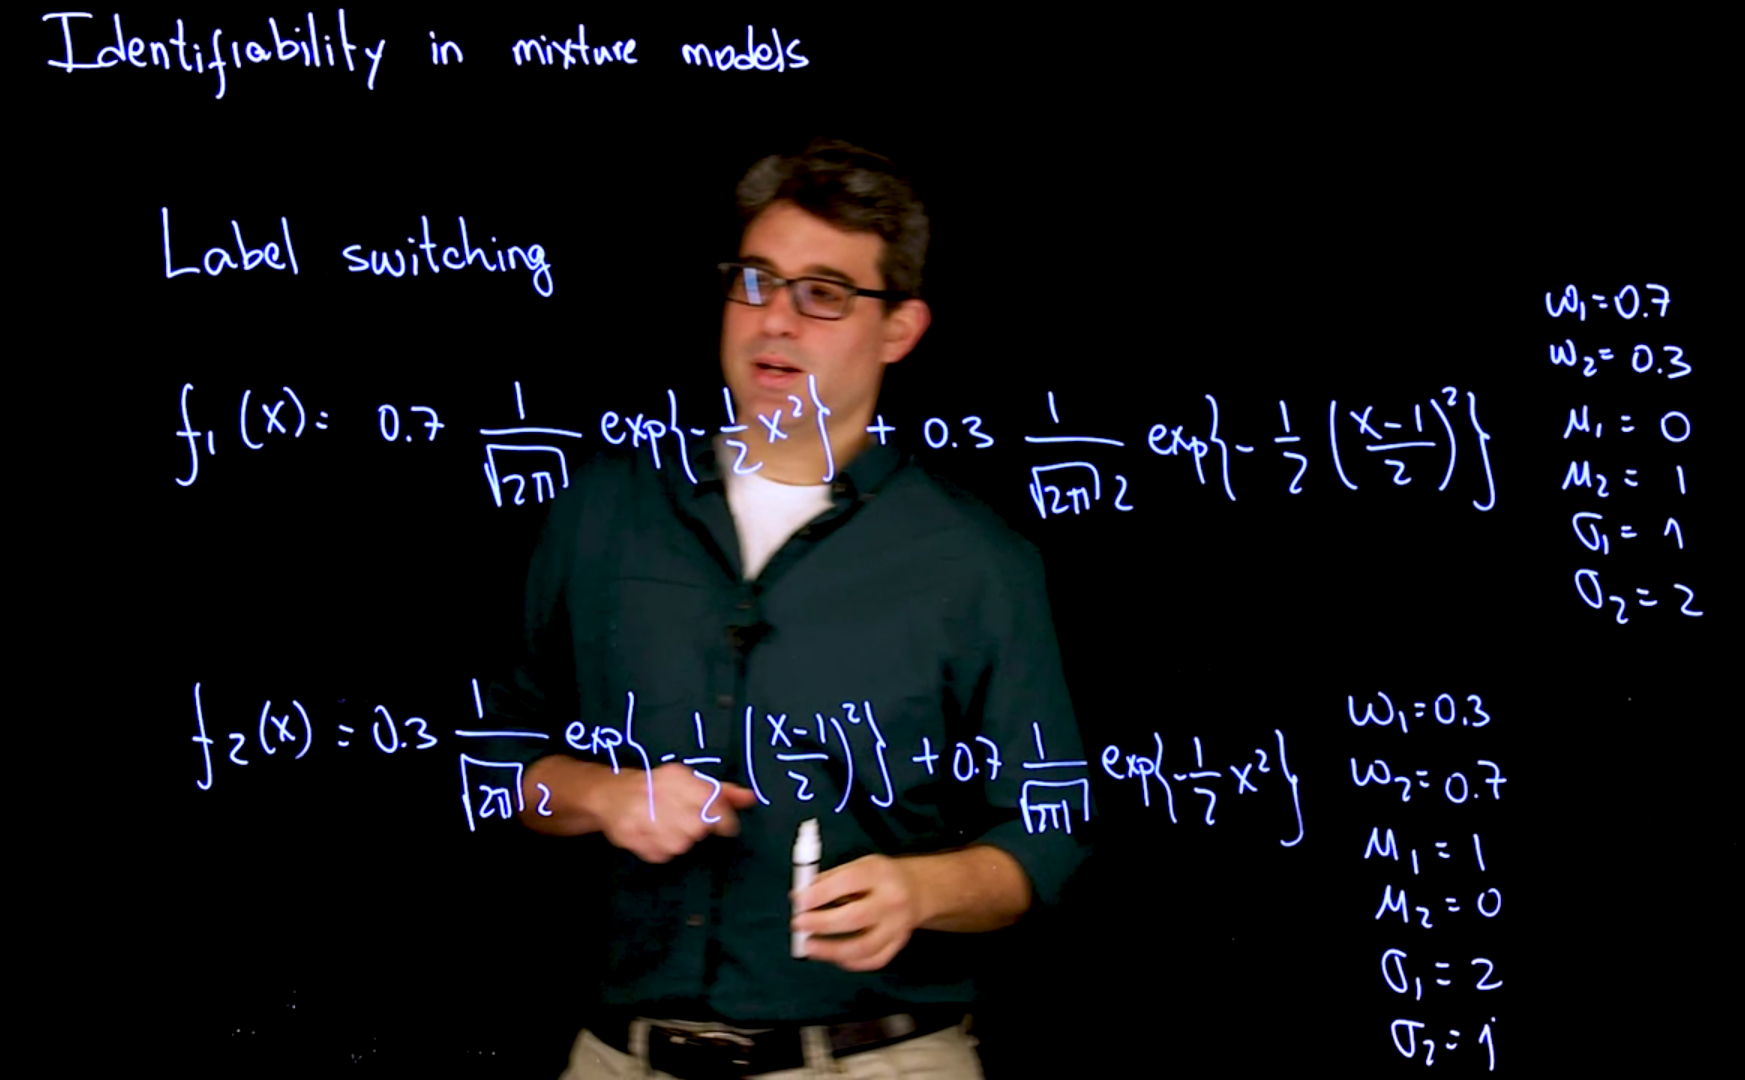 Identifiability in mixture models
Label switching
f₁(x) = 0.7 1/√2π exp{-1/2 x²} + 0.3 1/√2π 2 exp{-1/2 ((x-1)/2)²}
ω₁=0.7
ω₂=0.3
μ₁=0
μ₂=1
σ₁=1
σ₂=2
f₂(x) = 0.3 1/√2π 2 exp{-1/2 ((x-1)/2)²} + 0.7 1/√2π exp{-1/2 x²}
ω₁=0.3
ω₂=0.7
μ₁=1
μ₂=0
σ₁=2
σ₂=1